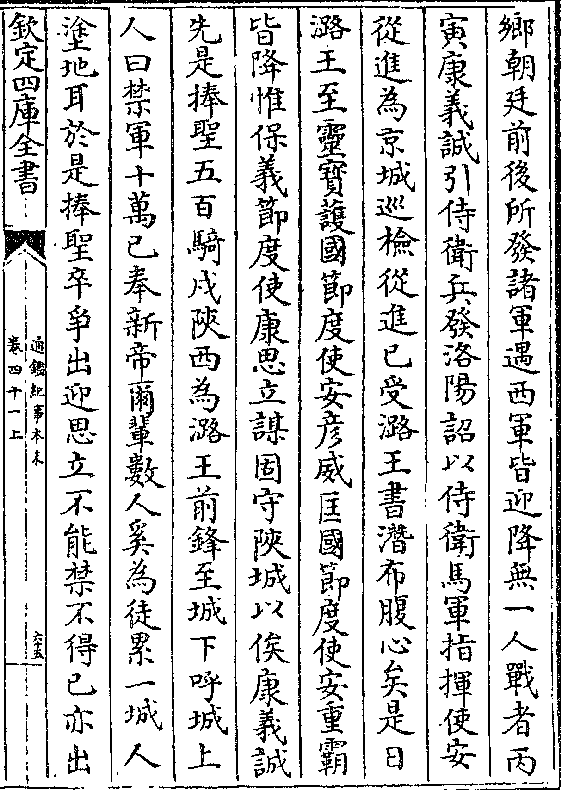 鄉朝廷前後所發諸軍遇西軍皆迎降無一人戰者丙
寅康義誠引侍衛兵發洛陽詔以侍衛馬軍指揮使安
從進為京城巡檢從進已受潞王書潛布腹心矣是日
潞王至靈寳護國節度使安彦威匡國節度使安重霸
皆降惟保義節度使康思立謀固守陜城以俟康義誠
先是捧聖五百騎戍陜西為潞王前鋒至城下呼城上
人曰禁軍十萬已奉新帝爾輩數人奚為徒累一城人
塗地耳於是捧聖卒爭出迎思立不能禁不得已亦出
欽定四庫全書
通鑑紀事本末
卷四十一上
六五